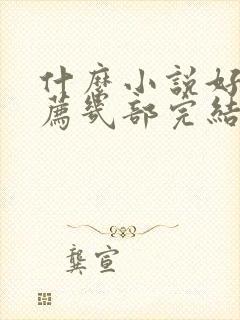 什麼小說好
薦幾部完結
龔宣